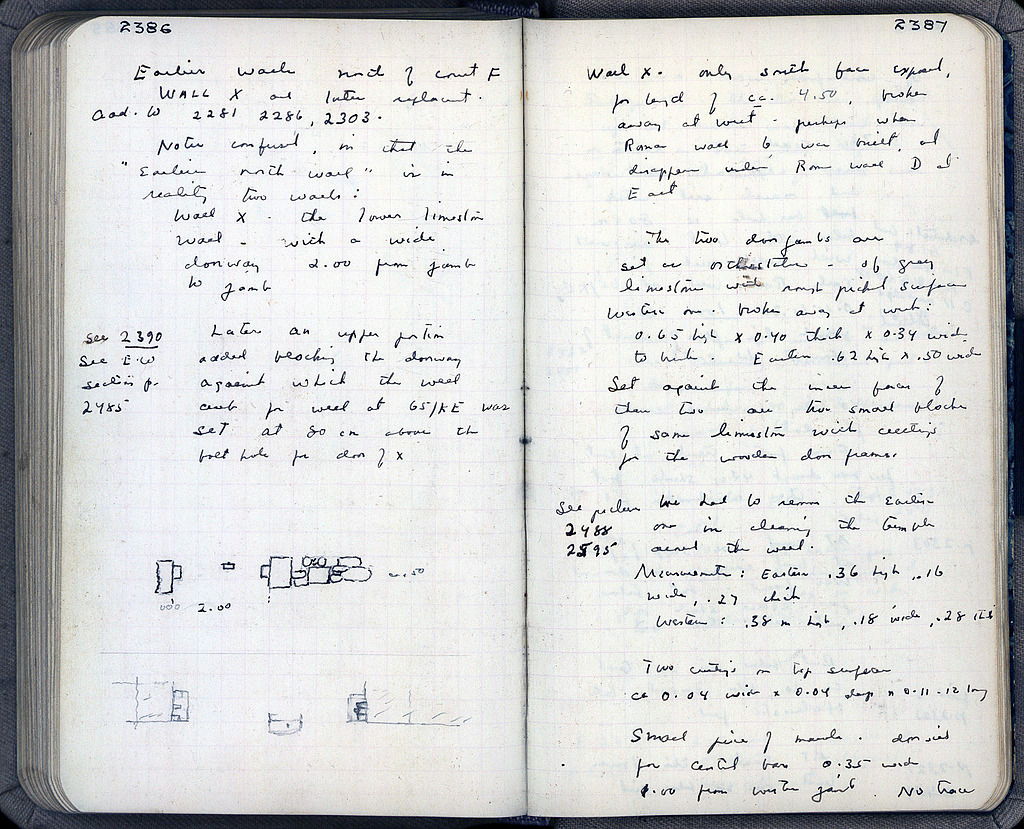 2386
Earlier walls north of court F
WALL X and later replacement.
Add. to 2281 2286, 2303.
Notes confused, in that the
"Earlier north wall" is in
reality two walls:
Wall X - the lower limestone
wall - with a wide
doorway 2.00 from jamb
to jamb
see 2390
See E-W
section p.
2485
Later an upper portion
added blocking the doorway
against which the well
curb for well at 65/KE was
set at 80 cm above the
bolt hole for door of X
2.00
ca .50
2387
Wall X. only south face exposed,
for length of ca. 4.50, broken
away at west - perhaps when
Roman wall 6 was built, and
disappears under Roman wall D at
East
The two door jambs are
set as orthostates - of gray
limestone with rough picked surface
Western one broken away at west:
0.65 high x 0.40 thick x 0.34 wide
to break. Eastern .62 high x .50 wide
Set against the inner faces of
these two are two small blocks
of same limestone with cuttings
for the wooden door frames.
See picture
2488
2595
We had to remove the Eastern
one in cleaning the temple
around the well.
Measurements: Eastern .36 high, .16
wide, .27 thick
Western: .38 m high, .18 wide, .28 thick
Two cuttings on top surface
ca 0.04 wide x 0.04 deep x 0.11-.12 long
Small piece of marble. door sill
for central bar 0.35 wide
1.00 from western jamb. No trace